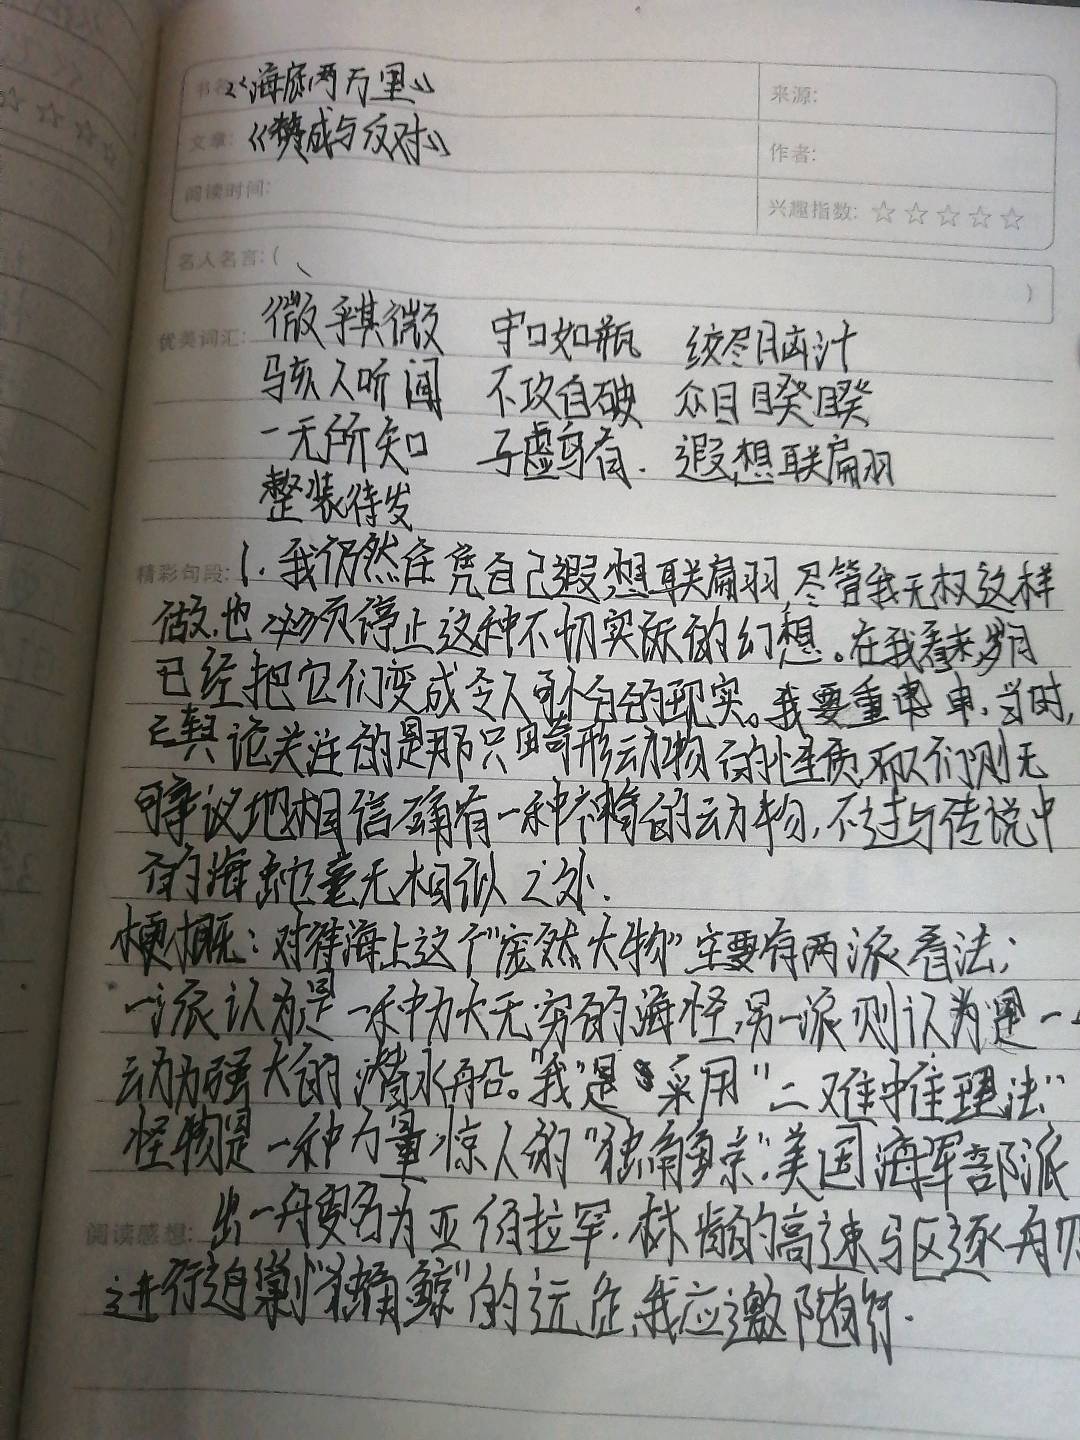 书名:《海底两万里》 来源:
文章:《赞成与反对》 作者:
阅读时间: 兴趣指数:☆☆☆☆☆
名人名言:( )
优美词汇: 微乎其微 守口如瓶 绞尽脑汁
骇人听闻 不攻自破 众目睽睽
一无所知 子虚乌有. 遐想联扁羽
整装待发
精彩句段: 1.我仍然任凭自己遐想联扁羽,尽管我无权这样
做,也必须停止这种不切实际的幻想。在我看来,岁月
已经把它们变成令人可怕的现实。我要重申,当时,
舆论关注的是那只畸形动物的性质,而人们则无
可争议地相信确有一种神奇的动物,不过与传说中
的海蛇毫无相似之处.
梗概:对待海上这个"庞然大物"主要有两派看法;
一派认为是一种力大无穷的海怪,另一派则认为是一
动力强大的潜水船。"我"是采用"二难推理法"
怪物是一种力量惊人的"独角鲸",美国海军部派
阅读感想: 出一舟更名为亚伯拉罕.林肯的高速驱逐舟
进行追剿"独角鲸"的远征,我应邀随行.